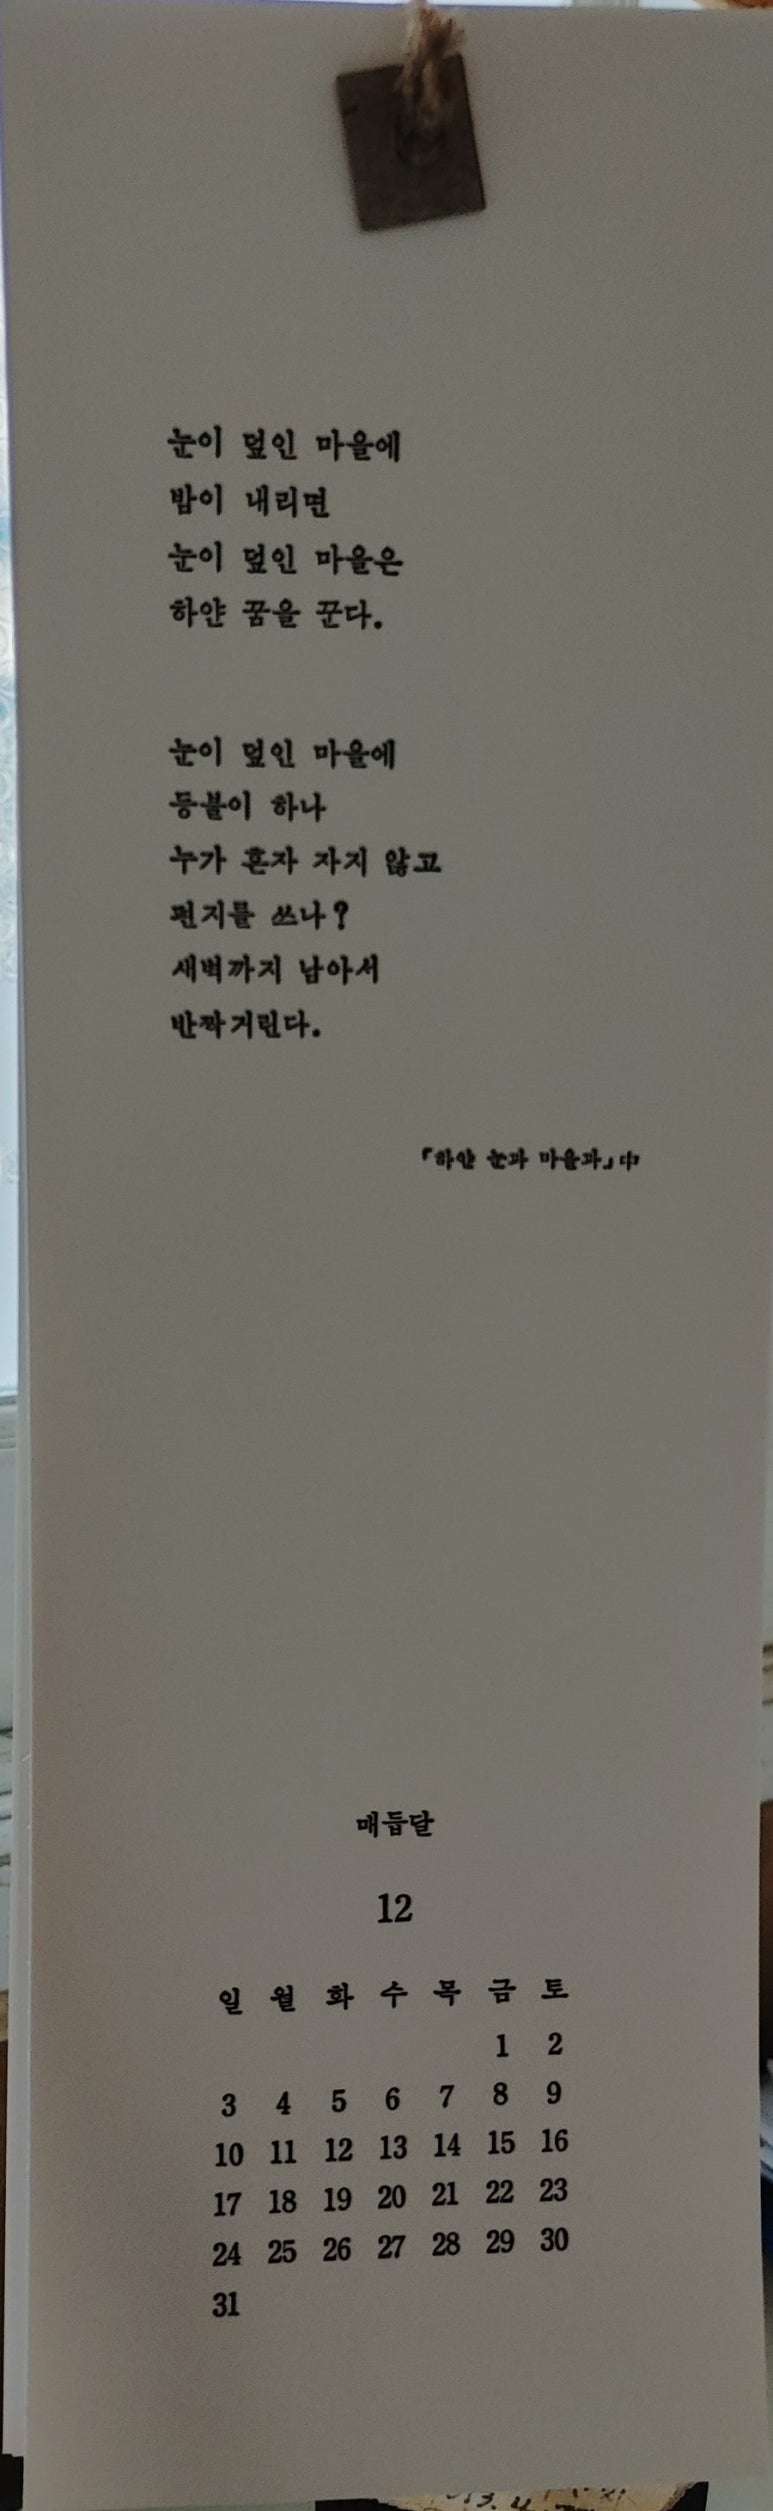 눈이 덮인 마을에
밤이 내리면
눈이 덮인 마을은
하얀 꿈을 꾼다.
눈이 덮인 마을에
등불이 하나
누가 혼자 자지 않고
편지를 쓰나?
새벽까지 남아서
반짝거린다.
『하얀 눈과 마을과』中
매듭달
12
일 월 화 수 목 금 토
1 2
3 4 5 6 7 8 9
10 11 12 13 14 15 16
17 18 19 20 21 22 23
24 25 26 27 28 29 30
31